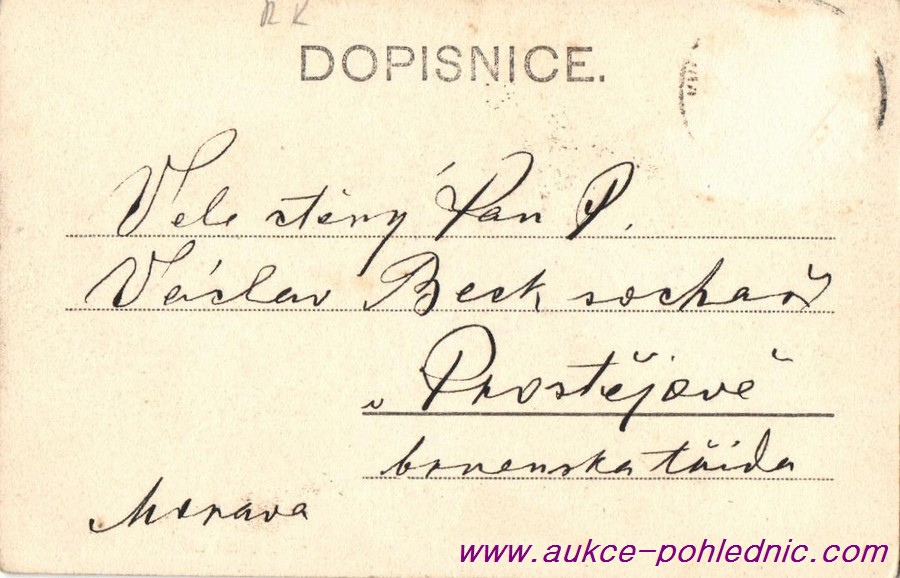 RK
DOPISNICE.
Vele ctěný Pan P.
Václav Beck sochař
v Prostějově
brnenska třída
Morava
www.aukce-pohlednic.com